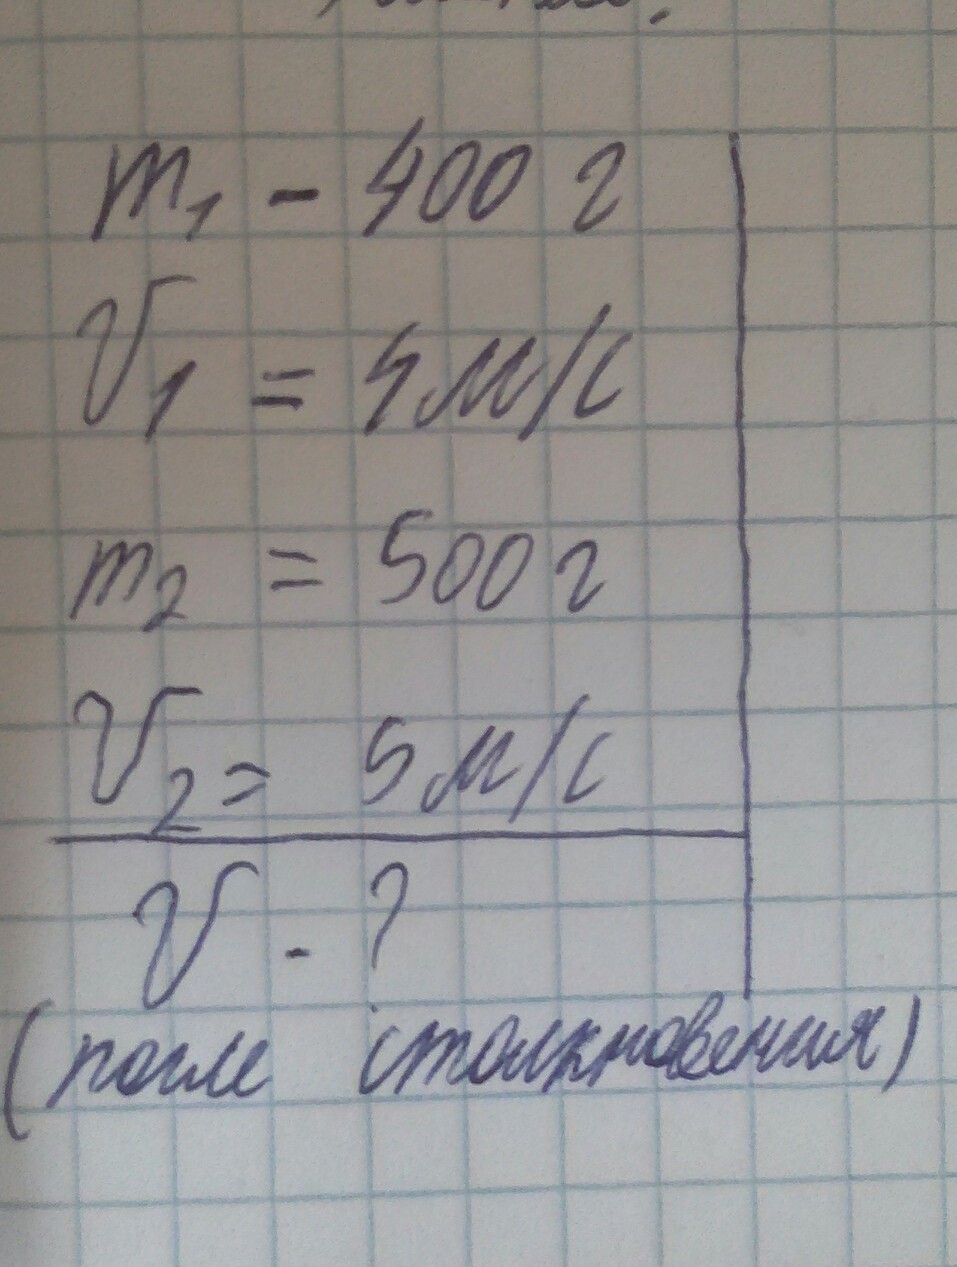 m₁ - 400 г
V₁ = 4 м/с
m₂ = 500 г
V₂ = 5 м/с
V - ?
(после столкновения)